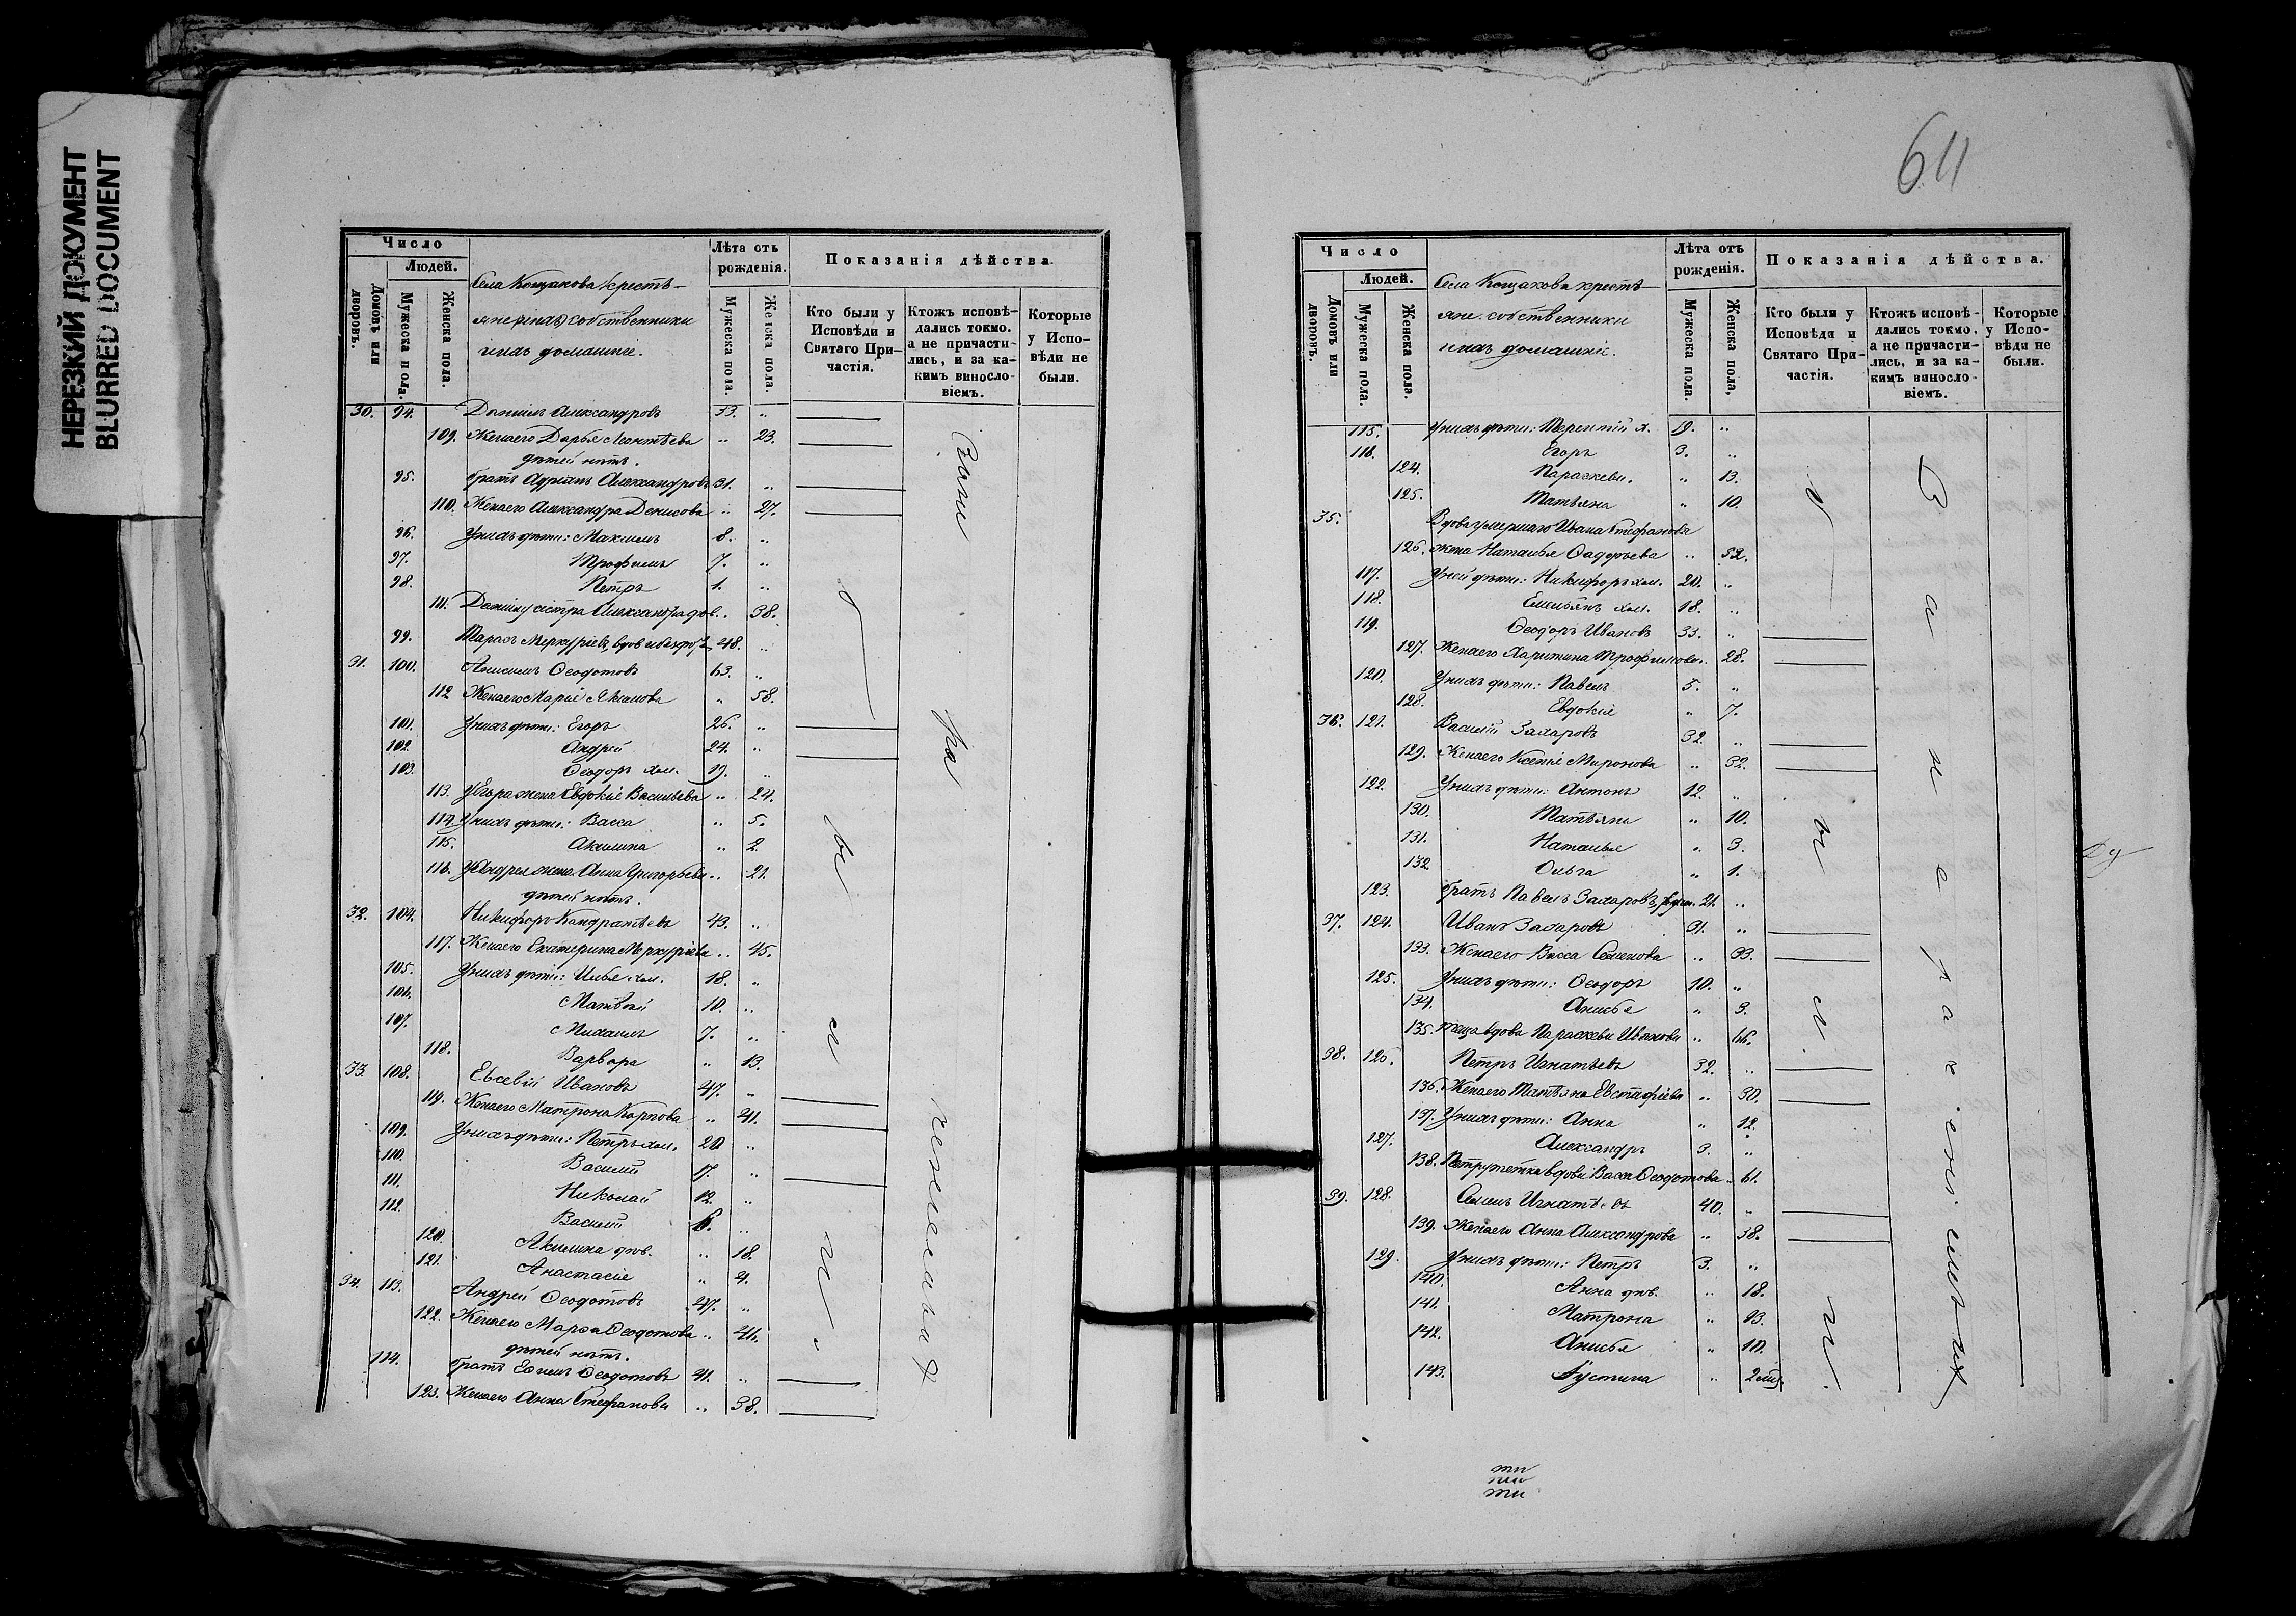 НЕРЕЗКИЙ ДОКУМЕНТ
BLURRED DOCUMENT
Число
Людей.
Домовъ или дворовъ.
Мужеска пола.
Женска пола.
Села Кощакова крестъ-
яне собственники
и ихъ домашніе.
Лѣта отъ рожденія.
Мужеска пола.
Женска пола.
Показанія дѣйства.
Кто были у Исповѣди и Святаго При-частія.
Ктожъ исповѣ-дались токмо, а не причасти-лись, и за ка-кимъ винослo-віемъ.
Которые у Испо-вѣди не были.
30. 94. Даніилъ Александровъ 33. „
109. Жена его Дарья Леонтьева „ 23.
дѣтей нѣтъ.
95. братъ Адріанъ Александровъ 31. „
110. Жена его Александра Денисова „ 27.
96. У нихъ дѣти: Максимъ 8. „
97. Трофимъ 7. „
98. Петръ 1. „
111. Даніилу сестра Александра „ 38.
99. Тарасъ Меркуріевъ, вдовъ 48. „
31. 100. Анисимъ Ѳеодотовъ 63. „
112. Жена его Марія Акимова „ 58.
101. У нихъ дѣти: Егоръ 26. „
102. Андрей 24. „
103. Ѳеодоръ хол. 19. „
113. У Егора жена Евдокія Васильева „ 24.
114. У нихъ дѣти: Васса „ 5.
115. Акилина „ 2.
116. У Андрея жена Анна Григорьева „ 21.
дѣтей нѣтъ.
32. 104. Никифоръ Кондратьевъ 43. „
117. Жена его Екатерина Меркуріева „ 45.
105. У нихъ дѣти: Илья хол. 18. „
106. Матвѣй 10. „
107. Михаилъ 7. „
118. Варвара „ 13.
33. 108. Евсевій Ивановъ 47. „
119. Жена его Матрона Карпова „ 41.
109. У нихъ дѣти: Петръ хол. 20 „
110. Василій 17. „
111. Николай 12. „
112. Василій 6. „
120. Акилина дѣв. „ 18.
121. Анастасія „ 4.
34. 113. Андрей Ѳеодотовъ 47. „
122. Жена его Марѳа Ѳеодотова „ 41.
дѣтей нѣтъ.
114. братъ Еѳимъ Ѳеодотовъ 41. „
123. Жена его Анна Стефанова „ 38.
611
Число
Людей.
Домовъ или дворовъ.
Мужеска пола.
Женска пола.
Села Кощакова крестъ-
яне собственники
и ихъ домашніе.
Лѣта отъ рожденія.
Мужеска пола.
Женска пола.
Показанія дѣйства.
Кто были у Исповѣди и Святаго При-частія.
Ктожъ исповѣ-дались токмо, а не причасти-лись, и за ка-кимъ винослo-віемъ.
Которые у Испо-вѣди не были.
115. У нихъ дѣти: Терентій х. 19. „
116. Егоръ 3. „
124. Параскева. „ 13.
125. Татьяна „ 10.
35. Вдова умершаго Ивана Стефанова
126. жена Наталья Ѳаддѣева „ 52.
117. У ней дѣти: Никифоръ хол. 20. „
118. Емельянъ хол. 18. „
119. Ѳеодоръ Ивановъ 33. „
127. Жена его Харитина Трофимова „ 28.
120. У нихъ дѣти: Павелъ 5. „
128. Евдокія „ 7.
36. 121. Василій Захаровъ 32. „
129. Жена его Ксенія Миронова „ 32.
122. У нихъ дѣти: Антонъ 12. „
130. Татьяна „ 10.
131. Наталья „ 3.
132. Ольга „ 1.
123. братъ Павелъ Захаровъ 21. „
37. 124. Иванъ Захаровъ 31. „
133. Жена его Васса Семенова „ 33.
125. У нихъ дѣти: Ѳеодоръ 10. „
134. Анисья „ 3.
135. теща вдова Параскева Иванова „ 66.
38. 126. Петръ Игнатьевъ 32. „
136. Жена его Татьяна Евстафіева „ 30.
137. У нихъ дѣти: Анна „ 12.
127. Александръ 3. „
138. Петру тетка вдова Васса Ѳеодотова „ 61.
39. 128. Семенъ Игнатьевъ 40. „
139. Жена его Анна Александрова „ 38.
129. У нихъ дѣти: Петръ 3. „
140. Анна дѣв. „ 18.
141. Матрона „ 13.
142. Анисья „ 10.
143. Іустина „ 2 мѣс.
Были
Были.